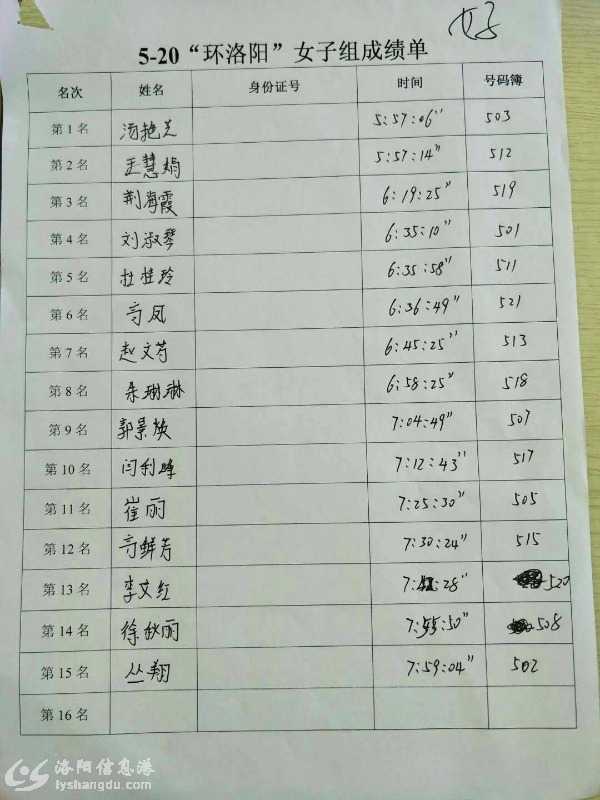 女子
5-20“环洛阳”女子组成绩单
名次 姓名 身份证号 时间 号码簿
第1名 汤艳芝 5:57:06" 503
第2名 王慧娟 5:57:14" 512
第3名 荆海霞 6:19:25" 519
第4名 刘淑琴 6:35:10" 501
第5名 杜桂玲 6:35:58" 511
第6名 高凤 6:36:49" 521
第7名 赵文芍 6:45:25" 513
第8名 朱琳琳 6:58:25" 518
第9名 郭景焕 7:04:49" 507
第10名 闫利峰 7:12:43" 517
第11名 崔丽 7:25:30" 505
第12名 高鲜芳 7:30:24" 515
第13名 李文红 520
第14名 徐秋丽 7:55:50" 508
第15名 丛翔 7:59:04" 502
第16名
洛阳信息港
lyshangdu.com